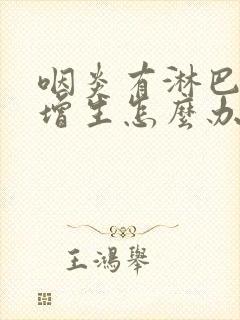 咽炎有淋巴
增生怎麼办
王鴻舉